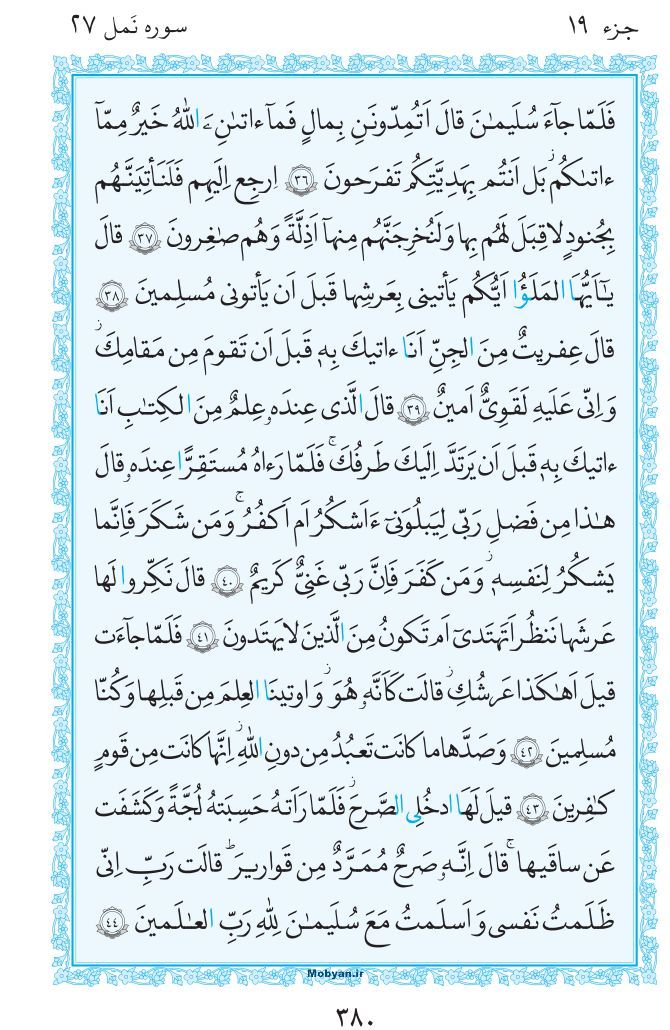 جزء ۱۹
سوره نَمل ۲۷
فَلَمّا جآءَ سُلَيمٰنَ قالَ اَتُمِدّونَنِ بِمالٍ فَمآ ءاتىٰنِۦَ اللهُ خَيرٌ مِمّآ
ءاتىٰكُم ۚ بَل اَنتُم بِهَدِيَّتِكُم تَفرَحونَ ۳۶ اِرجِع اِلَيهِم فَلَنَأتِيَنَّهُم
بِجُنودٍ لا قِبَلَ لَهُم بِها وَلَنُخرِجَنَّهُم مِنهآ اَذِلَّةً وَهُم صٰغِرونَ ۳۷ قالَ
يٰٓاَيُّهَا المَلَؤُا اَيُّكُم يَأتينى بِعَرشِها قَبلَ اَن يَأتونى مُسلِمينَ ۳۸
قالَ عِفريتٌ مِنَ الجِنِّ اَنَا ءاتيكَ بِهٖ قَبلَ اَن تَقومَ مِن مَقامِكَ ۖ
وَ اِنّى عَلَيهِ لَقَوِىٌّ اَمينٌ ۳۹ قالَ الَّذى عِندَهٗ عِلمٌ مِنَ الكِتٰبِ اَنَا
ءاتيكَ بِهٖ قَبلَ اَن يَرتَدَّ اِلَيكَ طَرفُكَ ۚ فَلَمّا رَءاهُ مُستَقِرًّا عِندَهٗ قالَ
هٰذا مِن فَضلِ رَبّى لِيَبلُوَنىٓ ءَاَشكُرُ اَم اَكفُرُ ۚ وَمَن شَكَرَ فَاِنَّما
يَشكُرُ لِنَفسِهٖ ۖ وَمَن كَفَرَ فَاِنَّ رَبّى غَنِىٌّ كَريمٌ ۴۰ قالَ نَكِّروا لَها
عَرشَها نَنظُر اَتَهتَدىٓ اَم تَكونُ مِنَ الَّذينَ لا يَهتَدونَ ۴۱ فَلَمّا جآءَت
قيلَ اَهٰكَذا عَرشُكِ ۖ قالَت كَاَنَّهٗ هُوَ ۚ وَ اوتينَا العِلمَ مِن قَبلِها وَكُنّا
مُسلِمينَ ۴۲ وَصَدَّها ما كانَت تَعبُدُ مِن دونِ اللهِ ۖ اِنَّها كانَت مِن قَومٍ
كٰفِرينَ ۴۳ قيلَ لَهَا ادخُلِى الصَّرحَ ۖ فَلَمّا رَاَتهُ حَسِبَتهُ لُجَّةً وَكَشَفَت
عَن ساقَيها ۚ قالَ اِنَّهٗ صَرحٌ مُمَرَّدٌ مِن قَواريرَ ۗ قالَت رَبِّ اِنّى
ظَلَمتُ نَفسى وَ اَسلَمتُ مَعَ سُلَيمٰنَ لِلّٰهِ رَبِّ العٰلَمينَ ۴۴
Mobyan.ir
۳۸۰